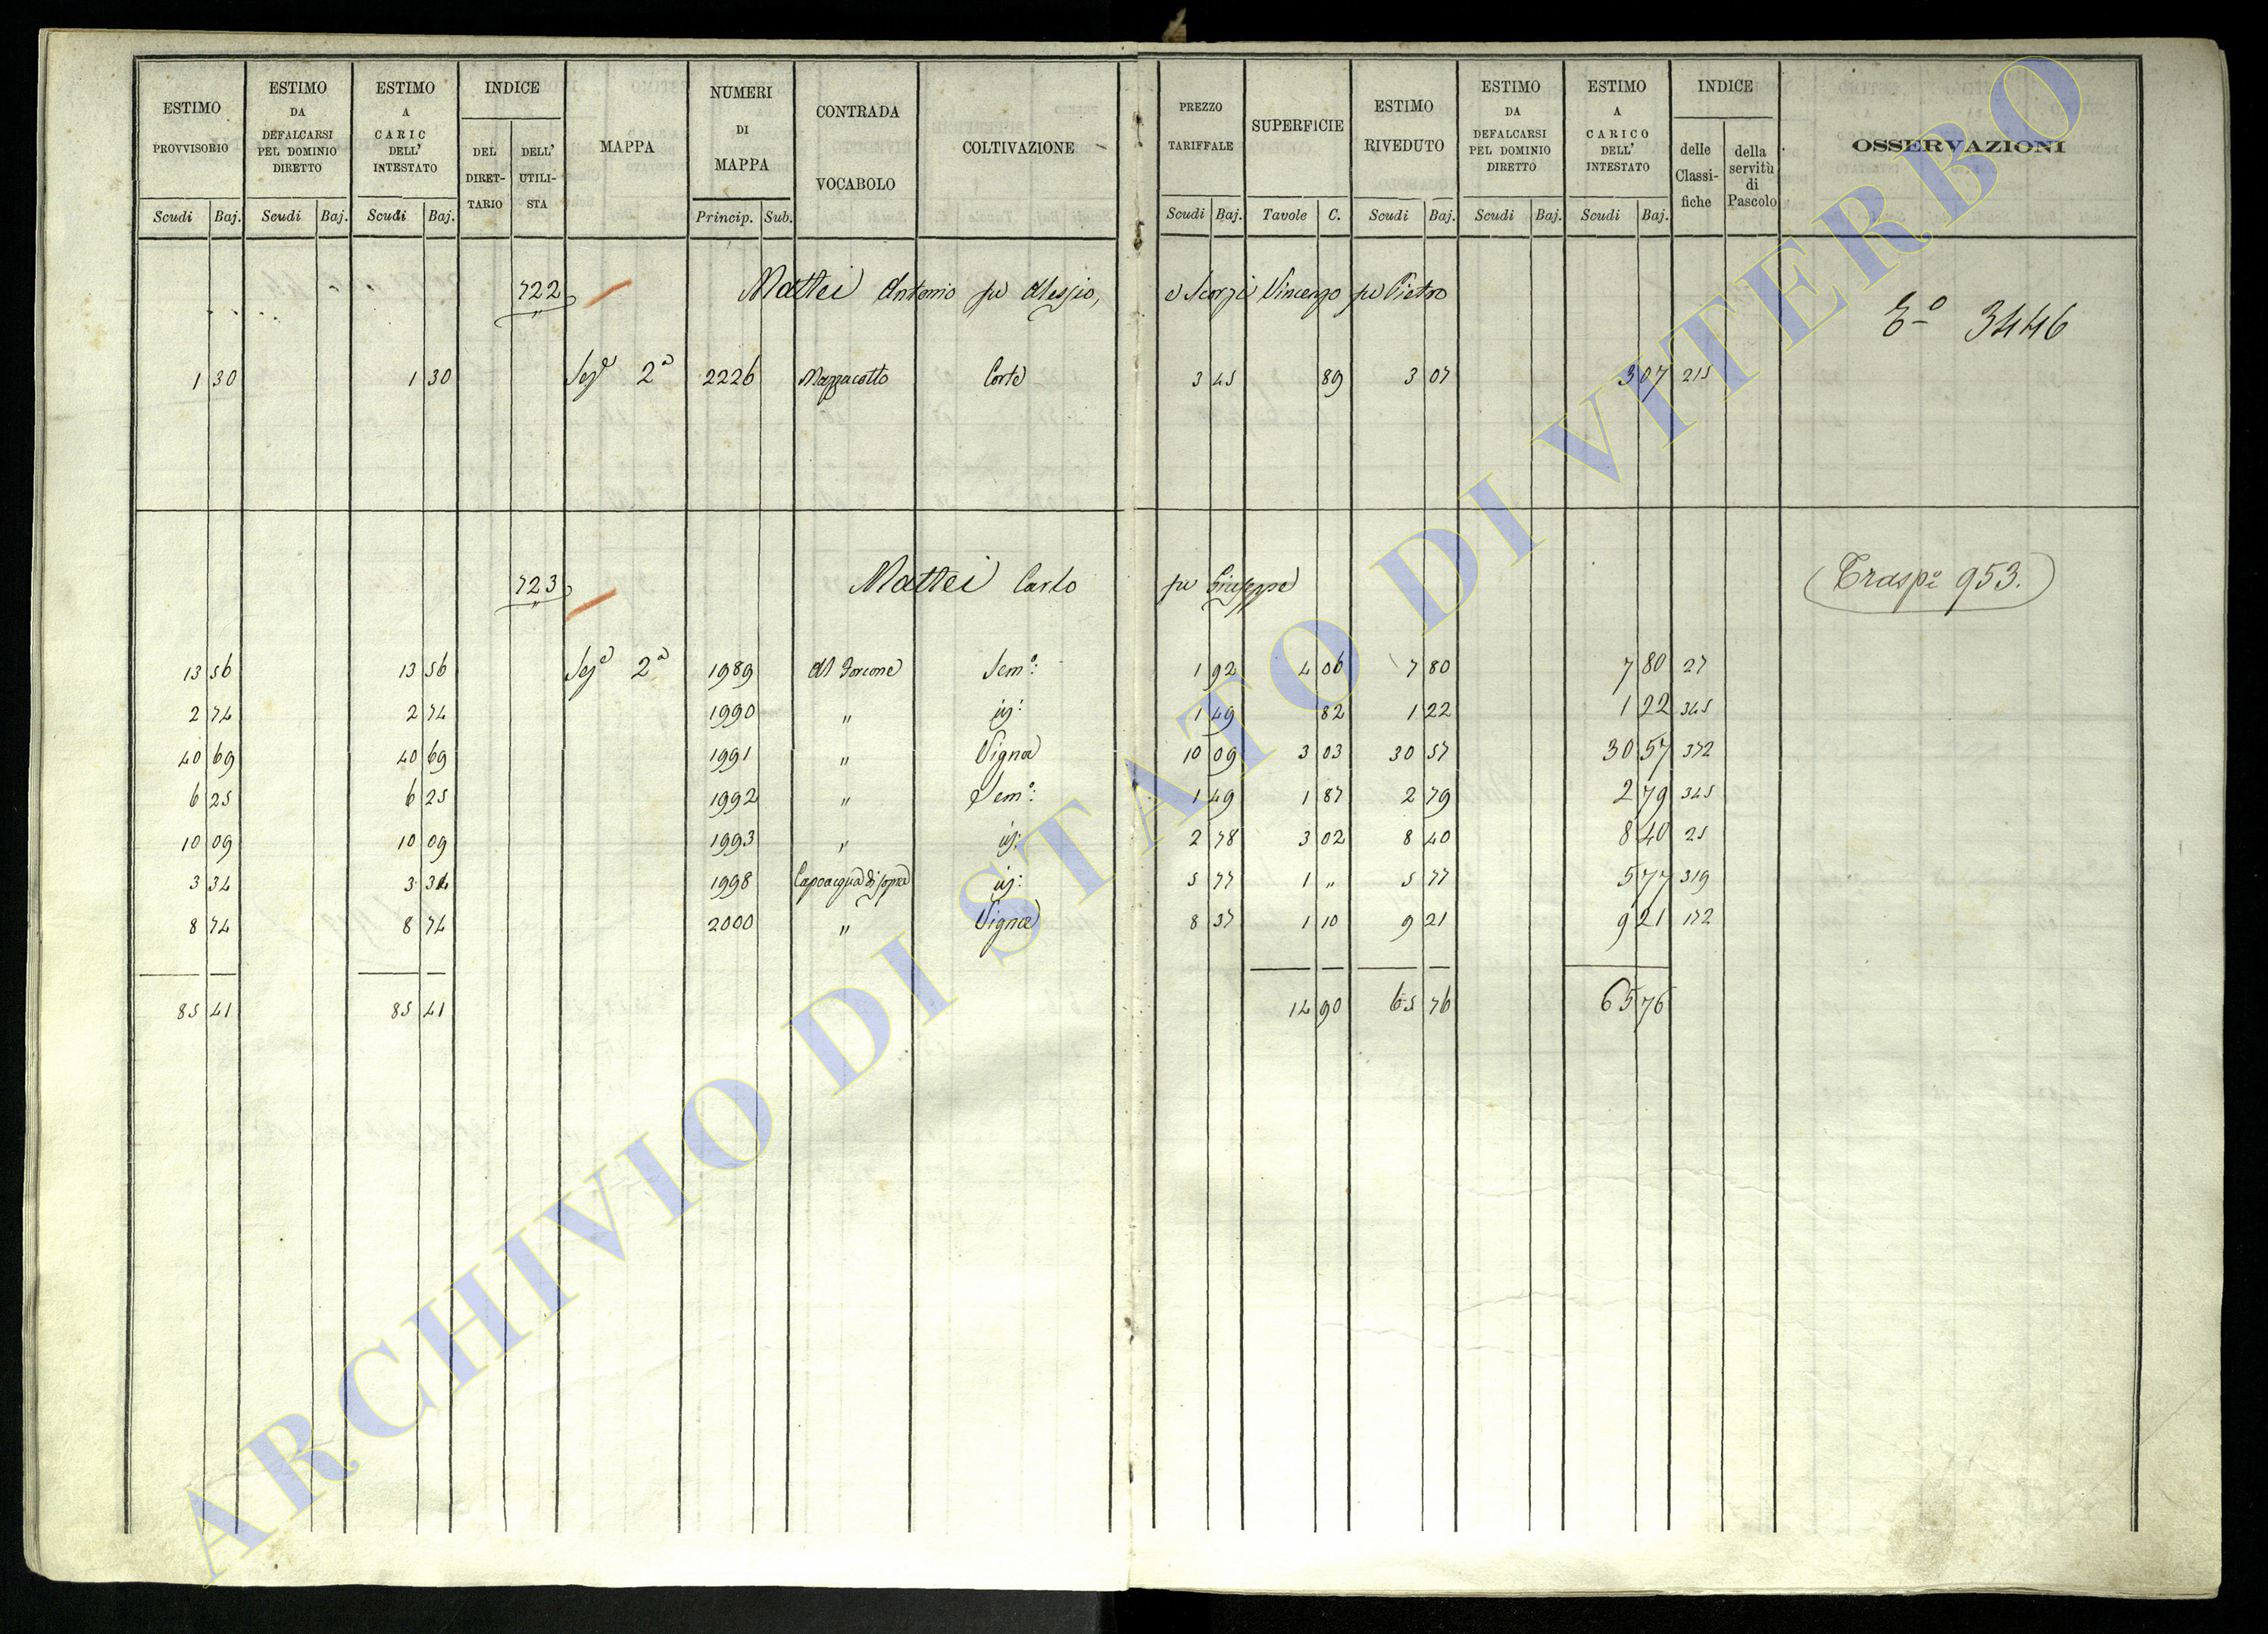 ESTIMO PROVVISORIO
ESTIMO DA DEFALCARSI PEL DOMINIO DIRETTO
ESTIMO A CARIC DELL' INTESTATO
INDICE
DEL DIRET-TARIO
DELL' UTILI-STA
MAPPA
NUMERI DI MAPPA
CONTRADA VOCABOLO
COLTIVAZIONE
PREZZO TARIFFALE
SUPERFICIE
ESTIMO RIVEDUTO
ESTIMO DA DEFALCARSI PEL DOMINIO DIRETTO
ESTIMO A CARICO DELL' INTESTATO
INDICE
delle Classi-fiche
della servitù di Pascolo
OSSERVAZIONI
Scudi Baj. Scudi Baj. Scudi Baj. Princip. Sub. Scudi Baj. Tavole C. Scudi Baj. Scudi Baj. Scudi Baj.
722 Mattei Antonio fu Alessio, e Scorzi Vincenzo fu Pietro
Eº 3446
1 30 1 30 Sezº 2ª 2226 Mazzacotto Corte 3 45 89 3 07 3 07 215
723 Mattei Carlo fu Giuseppe
Traspº 953.
13 56 13 56 Sezº 2ª 1989 Al Forcone Semº: 1 92 4 06 7 80 7 80 27
2 74 2 74 1990 " id: 1 49 82 1 22 1 22 345
40 69 40 69 1991 " Vigna 10 09 3 03 30 57 30 57 372
6 25 6 25 1992 " Semº: 1 49 1 87 2 79 2 79 345
10 09 10 09 1993 " id: 2 78 3 02 8 40 8 40 25
3 34 3 34 1998 Capoacqua di sopra id: 5 77 1 " 5 77 5 77 319
8 74 8 74 2000 " Vigna 8 37 1 10 9 21 9 21 172
85 41 85 41 14 90 65 76 65 76
ARCHIVIO DI STATO DI VITERBO